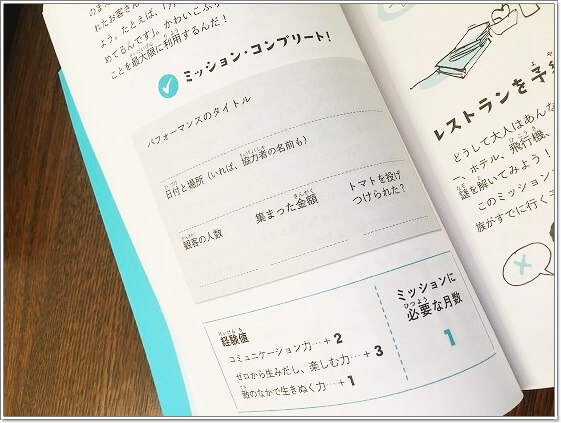 れたお客さん
よう。たとえば、「
めてるんです」。かわいこぶ
ことを最大限に利用するんだ!
ミッション・コンプリート!
パフォーマンスのタイトル
日付と場所(いれば、協力者の名前も)
観客の人数
集まった金額
トマトを投げ
つけられた?
経験値
コミュニケーション力…+2
ゼロから生みだし、楽しむ力…+3
敵のなかで生きぬく力…+1
ミッションに
必要な月数
1
レストランを予
どうして大人はあんな
ー、ホテル、飛行機、
謎を解いてみよう!
このミッション
族がすでに行くコ